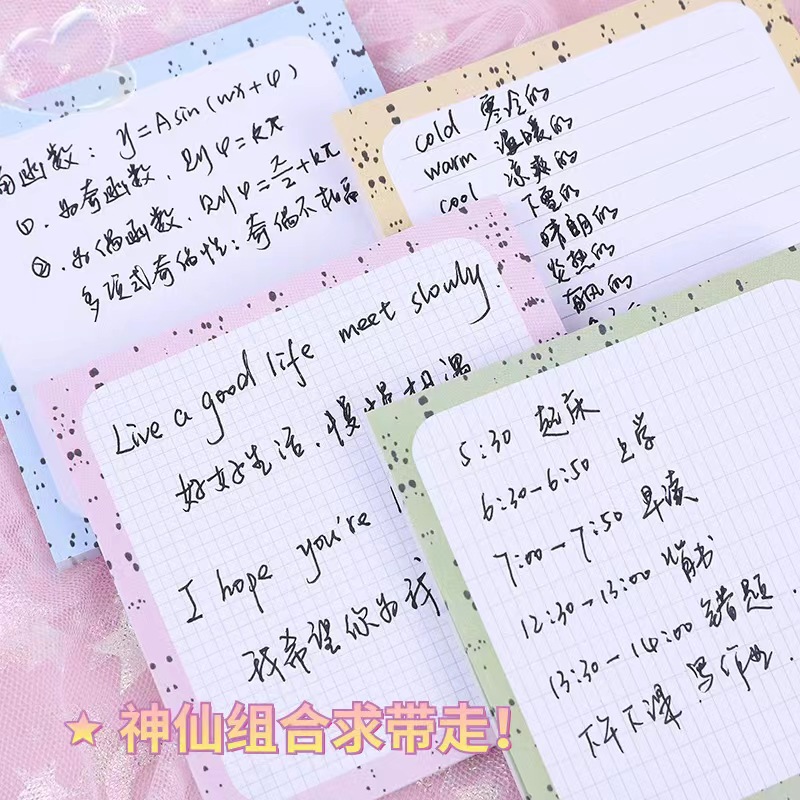 角函数：y=Asin(wx+φ)
①.为奇函数，则φ=kπ
②.为偶函数，则φ=π/2+kπ
多项式奇偶性：奇偶不相高
cold 寒冷的
warm 温暖的
cool 凉爽的
下雪的
晴朗的
炎热的
有风的
Live a good life meet slowly.
好好生活，慢慢相遇
I hope you're
我希望你为我
5:30 起床
6:30-6:50 上学
7:00-7:50 早读
12:30-13:00 背书
13:30-14:00 错题
下午下课 写作业
神仙组合求带走！